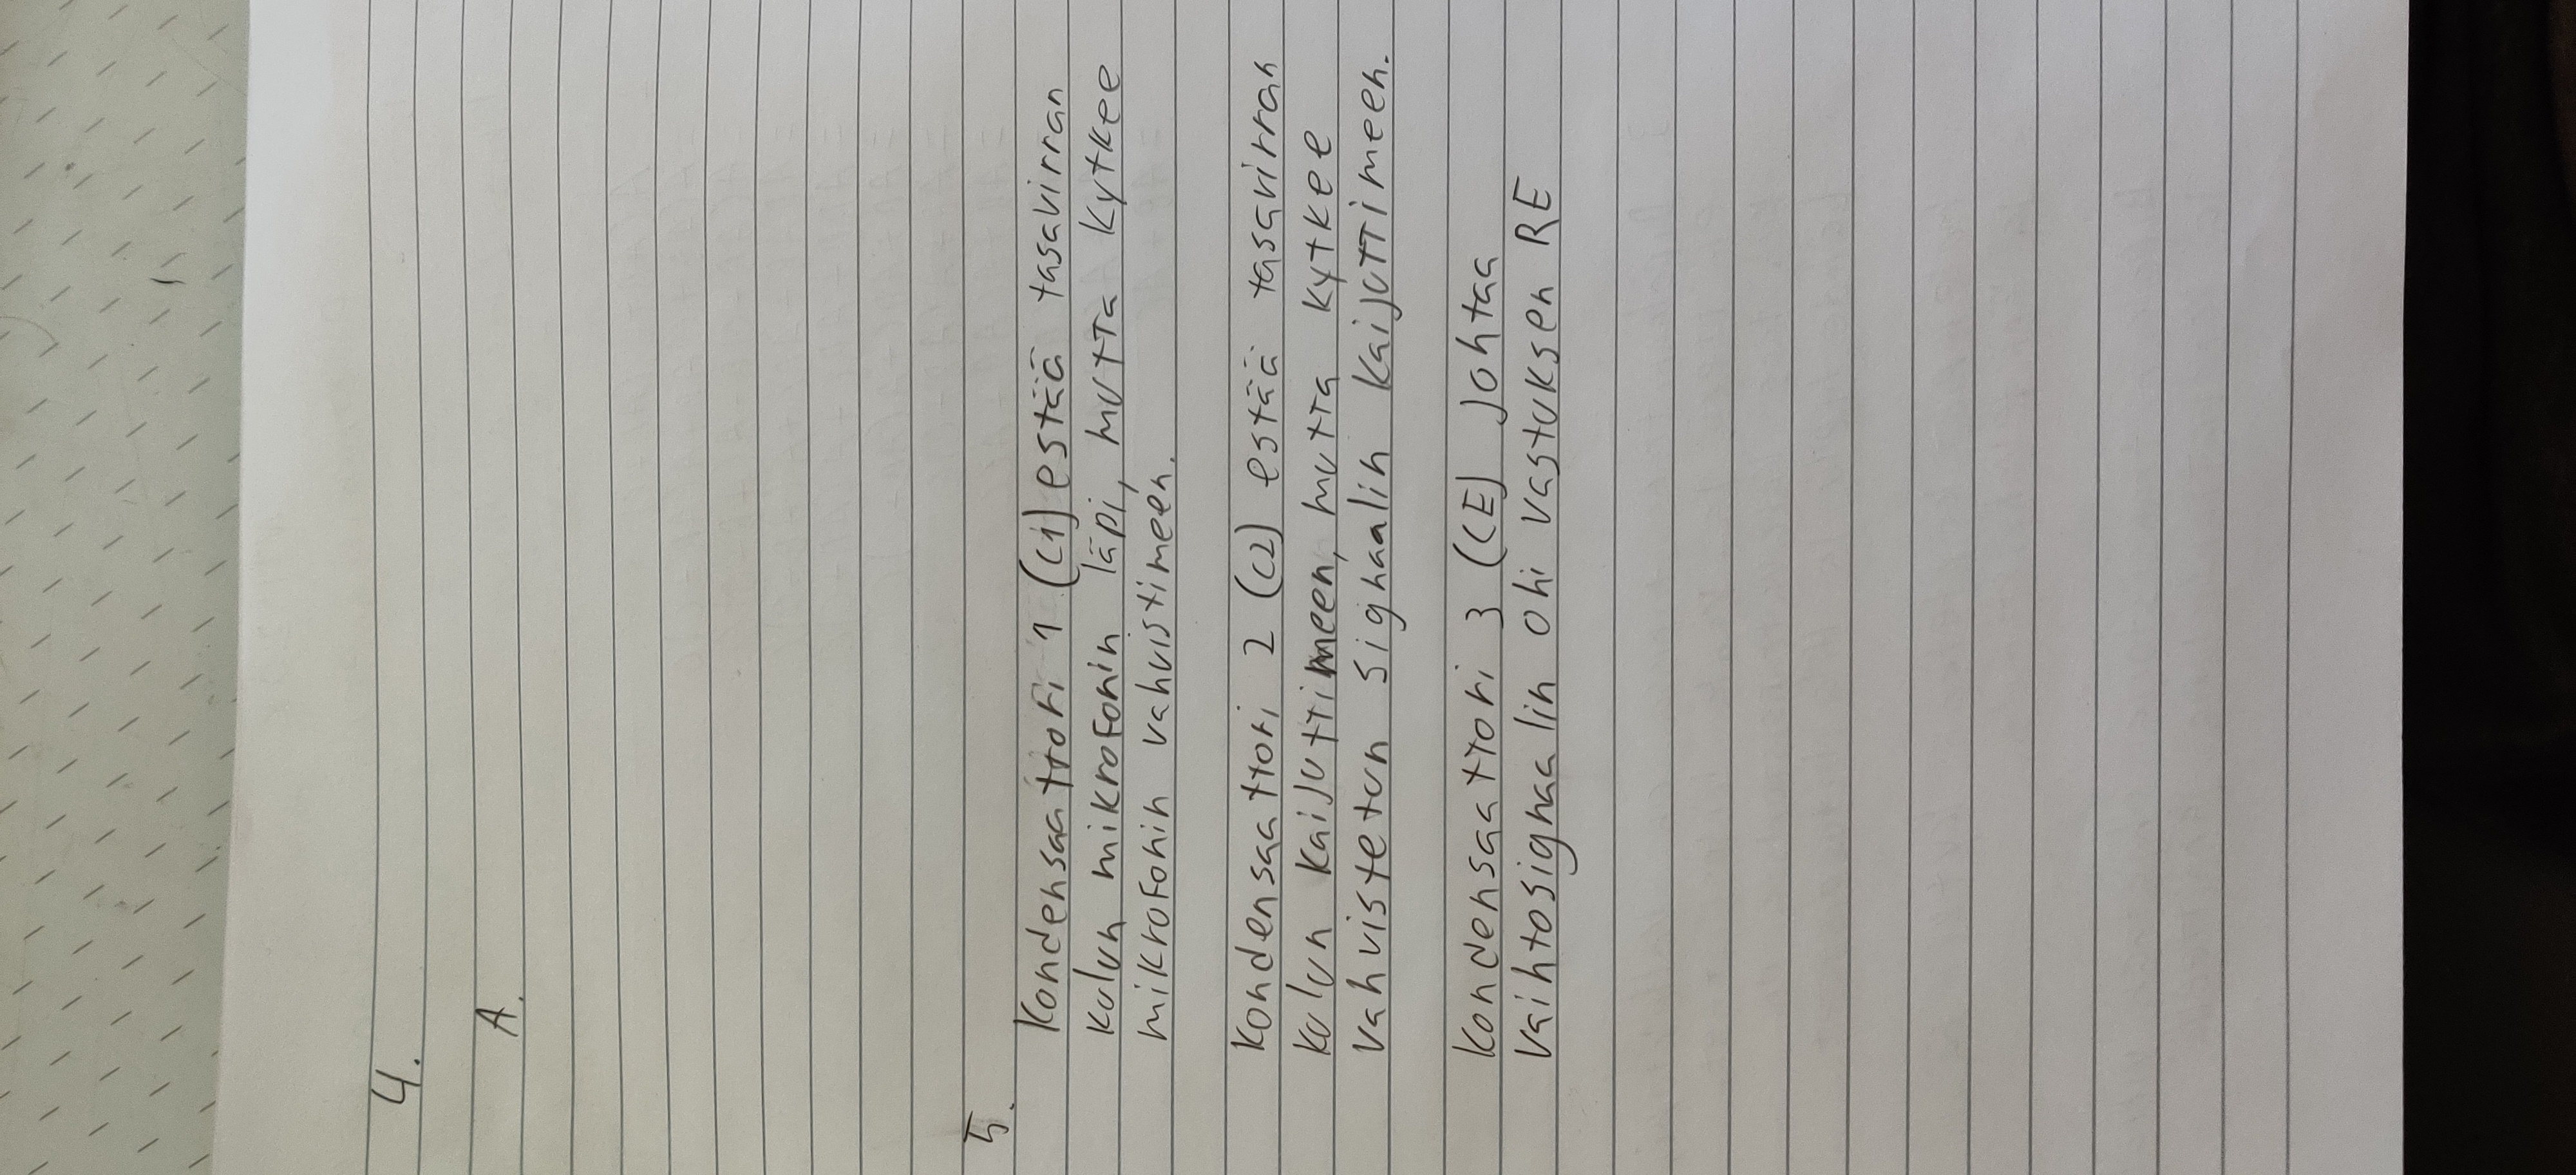 4.
A.
5.
Kondensaattori 1 (C1) estää tasavirran
kulun mikrofonin läpi, mutta kytkee
mikrofonin vahvistimeen.
Kondensaattori 2 (C2) estää tasavirran
kulun kaijuttimeen, mutta kytkee
vahvistetun signaalin kaijuttimeen.
Kondensaattori 3 (CE) johtaa
vaihtosignaalin ohi vastuksen RE